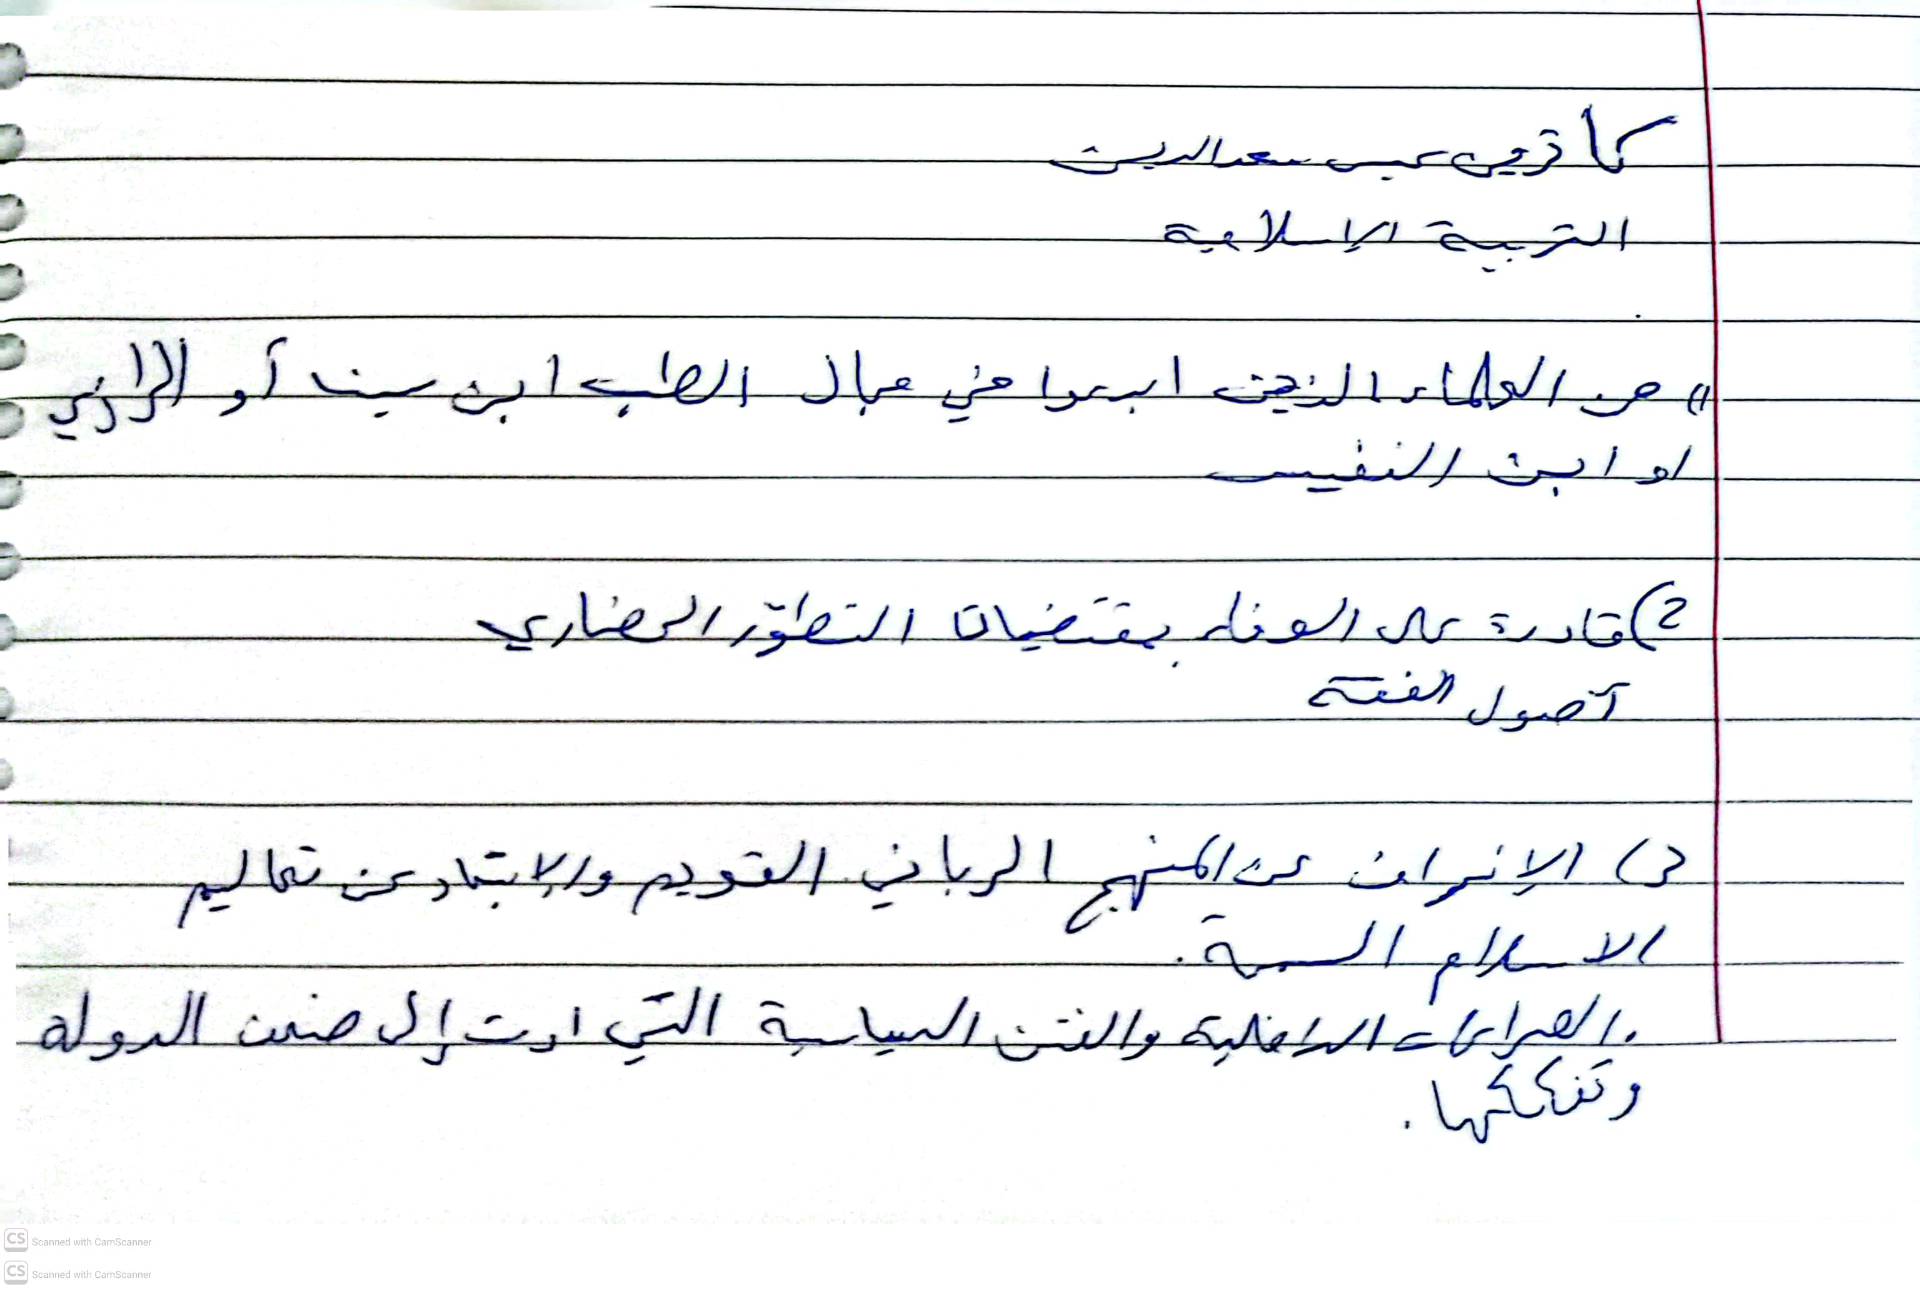 سعد الدين
التربية الإسلامية
1) من العلماء الذين ابدعوا في مجال الطب ابن سينا أو الرازي
او ابن النفيس
2) قادرة على الوفاء بمقتضيات التطوّر الحضاري
أصول الفقة
3) الإنحراف عن المنهج الرباني القويم والابتعاد عن تعاليم
الاسلام السمحة.
. الصراعات الداخلية والفتن السياسية التي ادت إلى ضعف الدولة
وتفككها.
CS Scanned with CamScanner
CS Scanned with CamScanner